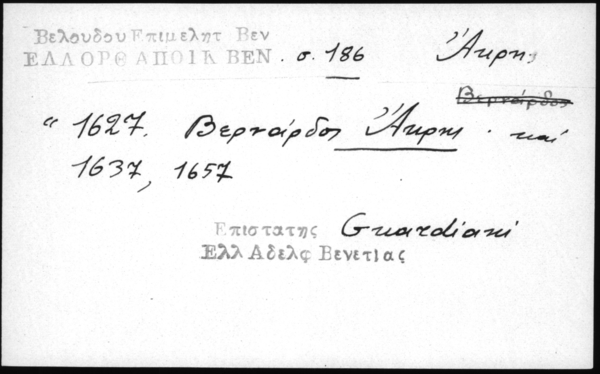 Βελούδου Επιμελητ Βεν
ΕΛΛΟΡΘ ΑΠΟΙΚ ΒΕΝ. σ. 186 Ἄκρης
Βερνάρδος
“ 1627. Βερνάρδος Ἄκρης · καί
1637, 1657
Επιστατης Guardiani
Ελλ Αδελφ Βενετιας